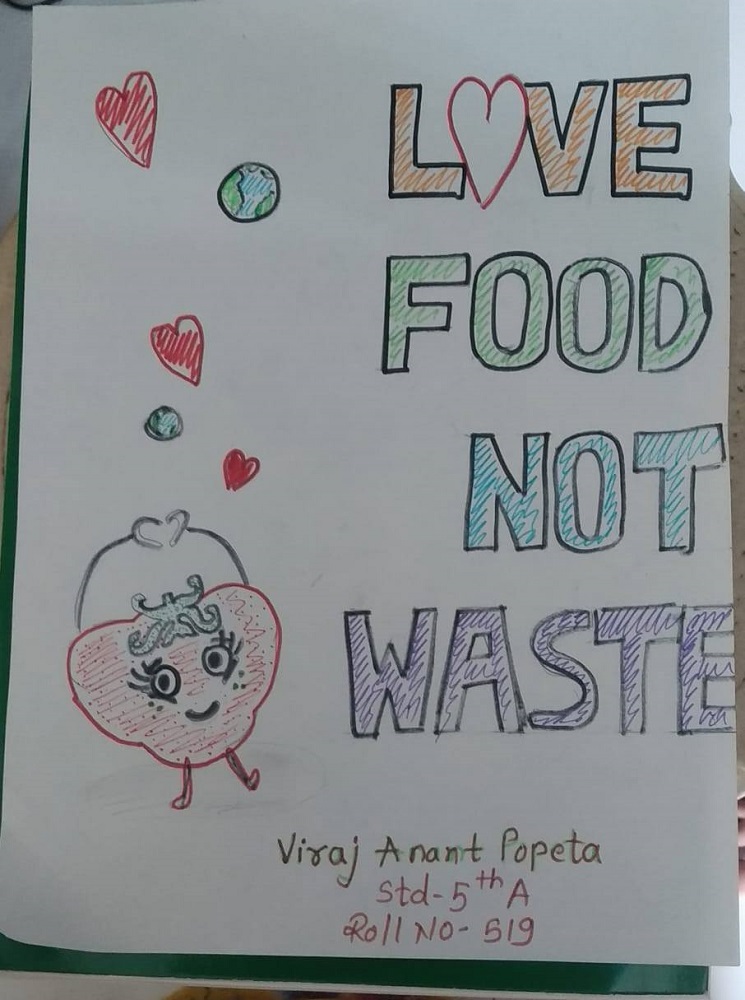 LOVE
FOOD
NOT
WASTE
Viraj Anant Popeta
Std-5th A
Roll No- 519